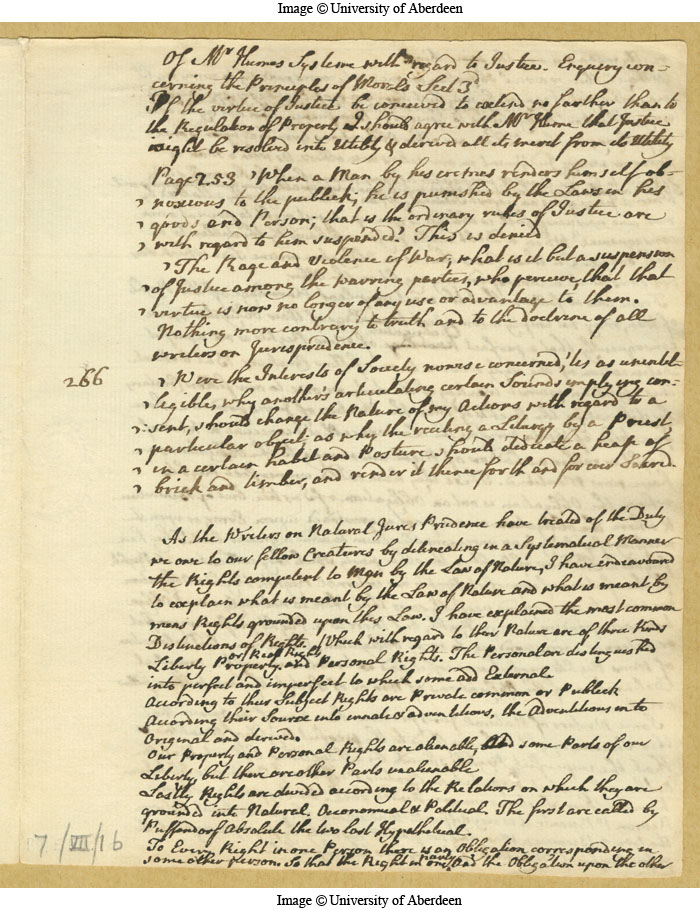 Image © University of Aberdeen
Of Mr Humes Systeme with regard to Justice. Enquiry con-
cerning the Principles of Morals Sect 3d
If the virtue of Justice be conceived to extend no farther than to
the Regulation of Property I should agree with Mr Hume that Justice
might be resolved into Utility & derived all its merit from its Utility
Page 253 ' When a Man by his crimes renders himself ob-
' noxious to the publick; he is punished by the Laws in his
' goods and Person; that is the ordinary rules of Justice are
' with regard to him suspended.' This is denied
' The Rage and Violence of War, what is it but a suspension
' of Justice among the warring parties, who perceive, that that
' virtue is now no longer of any use or advantage to them.
Nothing more contrary to truth and to the doctrine of all
writers on Jurisprudence.
266 ' Were the Interests of Society nowise concerned, 'tis as unintel-
' ligible, why another's articulating certain Sounds implying con-
' sent, should change the Nature of my Actions with regard to a
' particular object; as why the reciting a Liturgy by a Priest,
' in a certain habit and Posture should dedicate a heap of
' brick and timber, and render it thenceforth and for ever Sacred.
As the Writers on Natural Juris Prudence have treated of the Duty
we owe to our fellow Creatures by delineating in a Systematical Manner
the Rights competent to Men by the Law of Nature, I have endeavoured
to explain what is meant by the Law of Nature and what is meant by
mens Rights grounded upon this Law. I have explained the most common
Distinctions of Rights. Which with regard to their Nature are of three kinds
Liberty Property, or Real Rights and Personal Rights. The Personal are distinguished
into perfect and imperfect to which some add External.
According to their Subject Rights are Private common or Publick
According their Source into innate & adventitious, the Adventitious into
Original and derived.
Our Property and Personal Rights are alienable, and some Parts of our
Liberty, but there are other Parts unalienable
Lastly Rights are divided according to the Relations on which they are
grounded into Natural, Oeconomical & Political. The first are called by
Puffendorf Absolute the two last Hypothetical.
To Every Right in one Person there is an Obligation corresponding in
some other Person. So that the Right in one Party And the Obligation upon the other
7/VII/16
Image © University of Aberdeen